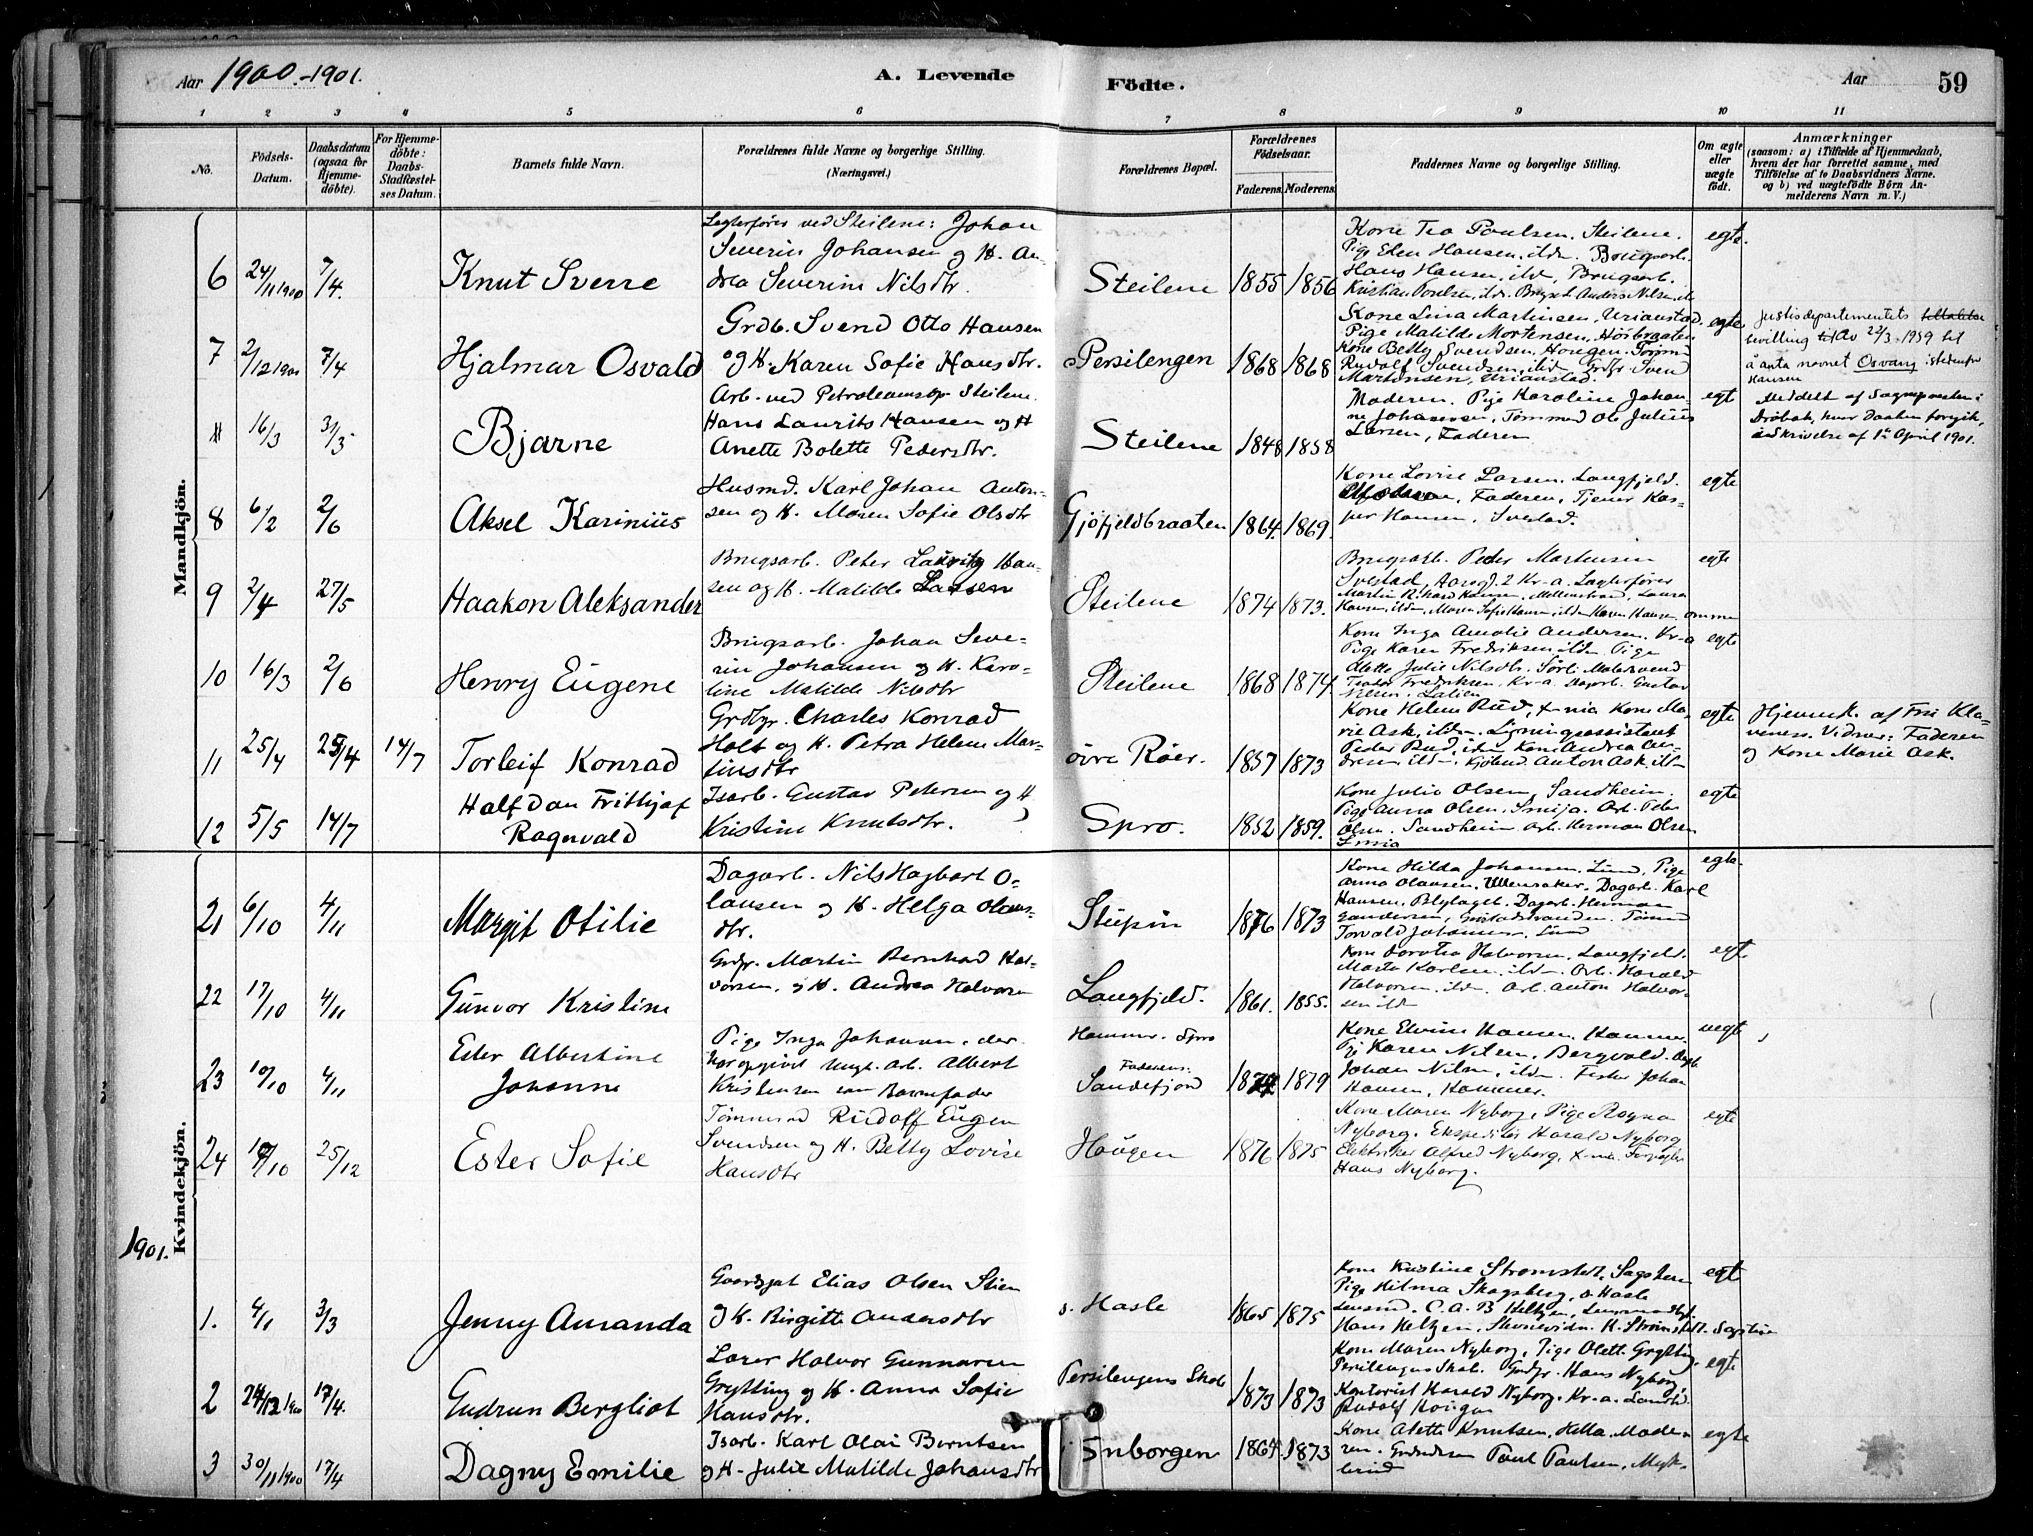 Aar 1900.-1901.
A. Levende
Födte.
Aar
59
1 2 3 4 5 6 7 8 9 10 11
No.
Födsels-Datum.
Daabsdatum (ogsaa for Hjemmedöbte).
For Hjemmedöbte: Daabs-Stadfæstelses Datum.
Barnets fulde Navn.
Forældrenes fulde Navne og borgerlige Stilling.
(Næringsvei.)
Forældrenes Bopæl.
Forældrenes Födselsaar.
Faderens. Moderens.
Faddernes Navne og borgerlige Stilling.
Om ægte eller uægte födt.
Anmærkninger
(saasom: a) i Tilfælde af Hjemmedaab, hvem der har forrettet samme, med Tilföielse af to Daabsvidners Navne. og b) ved uægtefödte Börn Anmelderens Navn m. V.)
Mandkjön.
6 24/11 1900 7/4. Knut Sverre
Lægterfører ved Steilene: Johan
Severin Johansen og H. An-
drea Severine Nilsdtr.
Steilene 1855 1856
Kone Tea Poulsen, Steilene.
Pige Elen Hansen, ildn. Brugsarb.
Hans Hansen, ildn, Brugsarb.
egte.
7 2/12 1900 7/4 Hjalmar Osvald
Grdb. Svend Otto Hansen
og H. Karen Sofie Hansdtr.
Persilengen 1868 1868
Kone Lina Martinsen, Urianstad.
Pige Matilde Mortensen,
Kone Betty Svendsen, Hougen. Tømm.
Rudolf Svendsen, ildn Grdbr Sven
Martinsen, Urianstad.
egte
Justisdepartementets
bevilling av 22/3 1959 til
å anta navnet Osvang istedenfor
Hansen
16/3 3/5 Bjarne
Arb. ved Petroleumsop. Steilene
Hans Laurits Hansen og H
Anette Bolette Pedersdtr.
Steilene 1848 1858
Moderen. Pige Karoline Johan-
ne Johansen, Tømmermd Ole Julius
Larsen, Faderen
egte
Meddelt af Sognepresten i
Drøbak, hvor Daaben foregik,
i Skrivelse af 1ste April 1901.
8 6/2 2/6 Aksel Karinius
Husmd. Karl Johan Anton-
sen og H. Maren Sofie Olsdtr
Gjøfjeldbraaten 1864. 1869.
Kone Lovise Larsen. Langfjeld.
Faderen, Tjener Kas-
per Hansen, Svestad.
egte
9 2/4 27/5 Haakon Aleksander
Brugsarb. Peter Lauritz Han-
sen og H. Matilde Larsen
Steilene 1874 1873.
Brugsarb. Peder Martensen
Svestad, Aaregd. 2 Kr-a. Lagterfører
Martin Rikhard Hansen, Mellemstrand, Laura
Hansen, ildn, Maren Sofie Hansen, ildn Karen Hansen,
egte
10 16/3 2/6 Henry Eugene
Brugsarb. Johan Seve-
rin Johansen og H. Karo-
line Matilde Nilsdtr
Steilene 1868 1874.
Kone Inga Amalie Andersen. Kr-a
Pige Karen Fredriksen ildn. Pige
Alette Julie Nilsdtr. Sørli Malersvend
Teodor Fredriksen, Kr-a. Dagarb. Gustav
Nilsen.
egte
11 25/4 25/4 14/7 Torleif Konrad
Grdbgr. Charles Konrad
Holt og H. Petra Helene Mar-
tinsdtr
øvre Røer. 1857 1873
Kone Helene Rud, x-nia Kone Ma-
rie Ask, ildn. Ligningsassistent
Peder Rud, ildn Kone Andrea An-
dresen, ildn, Kjøbmd. Anton Ask, ildn
egte
Hjemmek. af Fru Kla-
veness. Vidner: Faderen
og Kone Marie Ask.
12 5/5 14/7 Halfdan Frithjof
Ragnvald
Isarb. Gustav Petersen og H
Kristine Knutsdtr.
Spro. 1852 1859.
Kone Julie Olsen, Sandheim.
Pige Anna Olsen, Smija. Arb. Peter
Olsen. Sandheim Arb. Herman Olsen
Smia
egte
Kvindekjön.
21 6/10 4/11 Margit Otilie
Dagarb. Nils Hagbart O-
lausen og H. Helga Olaus-
dtr.
Stupin 1876 1873
Kone Hilda Johansen, Lund, Pige
Anna Olausen, Ullensaker. Dagarb. Karl
Hansen, Blylaget. Dagarb. Herman
Gundersen, Tømmd
Torvald Johansen, Lund
egte.
22 17/10 4/11 Gunvor Kristine
Grdbr. Martin Bernhard Hal-
vorsen, og H. Andrea Halvorsen
Langfjeld. 1861. 1855.
Kone Dorotea Halvorsen, Langfjeld.
Marta Karlsen, ildn. Arb. Harald
Halvorsen, ildn, Arb. Anton Halvor-
sen ildn
egte
23 10/10 4/11 Ester Albertine
Johanne
Pige Inga Johansen, der
har opgivet Ungk. Arb. Albert
Kristensen som Barnefader
Hammer. Spro
Faderens:
Sandefjord
1874 1879
Kone Elvine Hansen, Hammer.
Pige Karen Nilsen, Bergvald. Dagarb.
Johan Nilsen, ildn. Fisker Johan
Hansen, Hammer.
uegte
24 19/10 25/12 Ester Sofie
Tømmermd Rudolf Eugen
Svendsen og H. Betty Lovise
Hansdtr
Haugen 1876 1875
Kone Maren Nyborg, Pige Ragna
Nyborg. Ekspeditør Harald Nyborg
Elektriker Alfred Nyborg, x-nia. Forpagter
Hans Nyborg.
egte
1901.
1. 4/1 3/3 Jenny Amanda
Gaardbgst Elias Olsen Stien
og H. Birgitte Andersdtr
ø. Hasle 1865 1875
Kone Kristine Strømstet, Sagstuen
Pige Hilma Skogsberg, ø. Hasle
Lensmd. C. A. B Heltzen, Lensmandsgd.
Hans Heltzen, K. Strømstet. Sagstuen
egte
2 24/12 1900 17/4. Gudrun Bergliot
Lærer Halvor Gunnarsen
Grytting og H. Anna Sofie
Hansdtr.
Persilengens Skole 1873 1873
Kone Maren Nyborg, Pige Olette Grytting.
Persilengens Skole. Grdbr. Hans Nyborg,
Kontorist Harald Nyborg. Kr-a.
Rudolf Hougen
egte
3 30/11 1900 17/4 Dagny Emilie
Isarb. Karl Olai Berntsen
og H. Julie Matilde Johansdtr
i Enborgen 1864 1873
Kone Alette Knutsen, Hella. Mode-
ren. Poul Paulsen, Myk-
lerud
egte